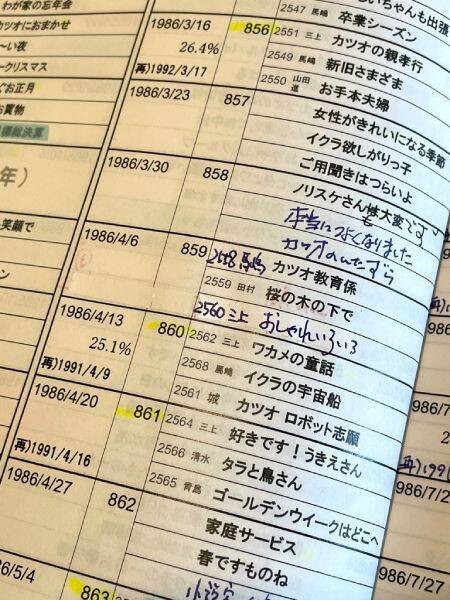 わが家の忘年会
カツオにおまかせ
〜い夜
ークリスマス
お正月
お買物
総決算
年）
笑顔で
ン
2547 馬嶋 卒業シーズン
1986/3/16 856 2551 三上 カツオの親孝行
26.4% 2549 馬嶋 新旧さまざま
再)1992/3/17 2550 山田進 お手本夫婦
1986/3/23 857 女性がきれいになる季節
イクラ欲しがりっ子
ご用聞きはつらいよ
1986/3/30 858 ノリスケさんも大変です
本当に
カツオのいたずら
1986/4/6 859 2558 馬嶋 カツオ教育係
2559 田村 桜の木の下で
2560 三上 おしゃれいろいろ
1986/4/13 860 2562 三上 ワカメの童話
25.1% 2568 馬嶋 イクラの宇宙船
再)1991/4/9 2561 城 カツオ ロボット志願
1986/4/20 861 2564 三上 好きです！うきえさん
2566 清水 タラと鳥さん
再)1991/4/16 2565 青島 ゴールデンウイークはどこへ
1986/4/27 862 家庭サービス
春ですものね
86/5/4 863
1986/
1986/7/
再)199
986/7/2
1986/7/27